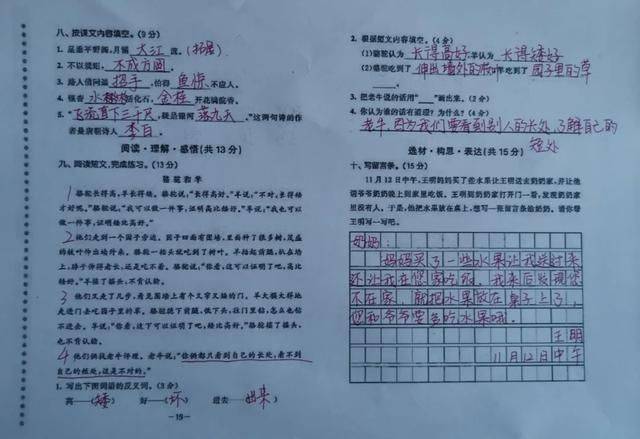 八、按课文内容填空。(9分)
1. 星垂平野阔,月涌大江流。(拓展)
2. 不以规矩,不成方圆。
3. 路人借问遥招手,怕得鱼惊不应人。
4. 银杏水杉活化石,金桂开花满院香。
5. “飞流直下三千尺,疑是银河落九天。”这两句诗的作
者是唐朝诗人李白。
阅读·理解·感悟(共13分)
九、阅读短文,完成练习。(13分)
骆驼和羊
1骆驼长得高,羊长得矮。骆驼说:“长得高好。”羊说:“不对,长得矮
才好呢。”骆驼说:“我可以做一件事,证明高比矮好。”羊说:“我也可以
做一件事,证明矮比高好。”
2他们走到一个园子旁边。园子四面有围墙,里面种了很多树,茂盛
的枝叶伸出墙外来。骆驼一抬头就吃到了树叶。羊抬起前腿,扒在墙
上,脖子伸得老长,还是吃不着。骆驼说:“你看,这可以证明了吧,高比
矮好。”羊摇了摇头,不肯认输。
3他们又走了几步,看见围墙上有个又窄又矮的门。羊大模大样地
走进门去吃园子里的草。骆驼跪下前腿,低下头,往门里钻,怎么也钻
不进去。羊说:“你看,这下可以证明了吧,矮比高好。”骆驼摇了摇头,
也不肯认输。
4他们俩找老牛评理。老牛说:“你俩都只看到自己的长处,看不到
自己的短处,这是不对的。”
1. 写出下面词语的反义词。(3分)
高——(矮) 好——(坏) 进去——(出来)
—19—
2. 根据短文内容填空。(4分)
(1)骆驼认为长得高好,羊认为长得矮好
(2)骆驼吃到了伸出墙外的树叶,羊吃到了园子里的草
3. 把老牛说的话用“____”画出来。(2分)
4. 你认为谁的话有道理?为什么?(4分)
老牛,因为我们要看到别人的长处,了解自己的
短处
选材·构思·表达(共15分)
十、写留言条。(15分)
11月12日中午,王明妈妈买了些水果让王明送去奶奶家,并让他
请爷爷奶奶晚上到家里吃饭。王明到奶奶家打开门一看,发现奶奶家
里没有人。于是,他把水果放在桌上,想写一张留言条给奶奶。请你帮
王明写一写吧。
奶奶:
妈妈买了一些水果让我送过来,
还让我在您家吃饭。我来后发现您
不在家,就把水果放在桌子上了,
您和爷爷要多吃水果哦。
王明
11月12日中午